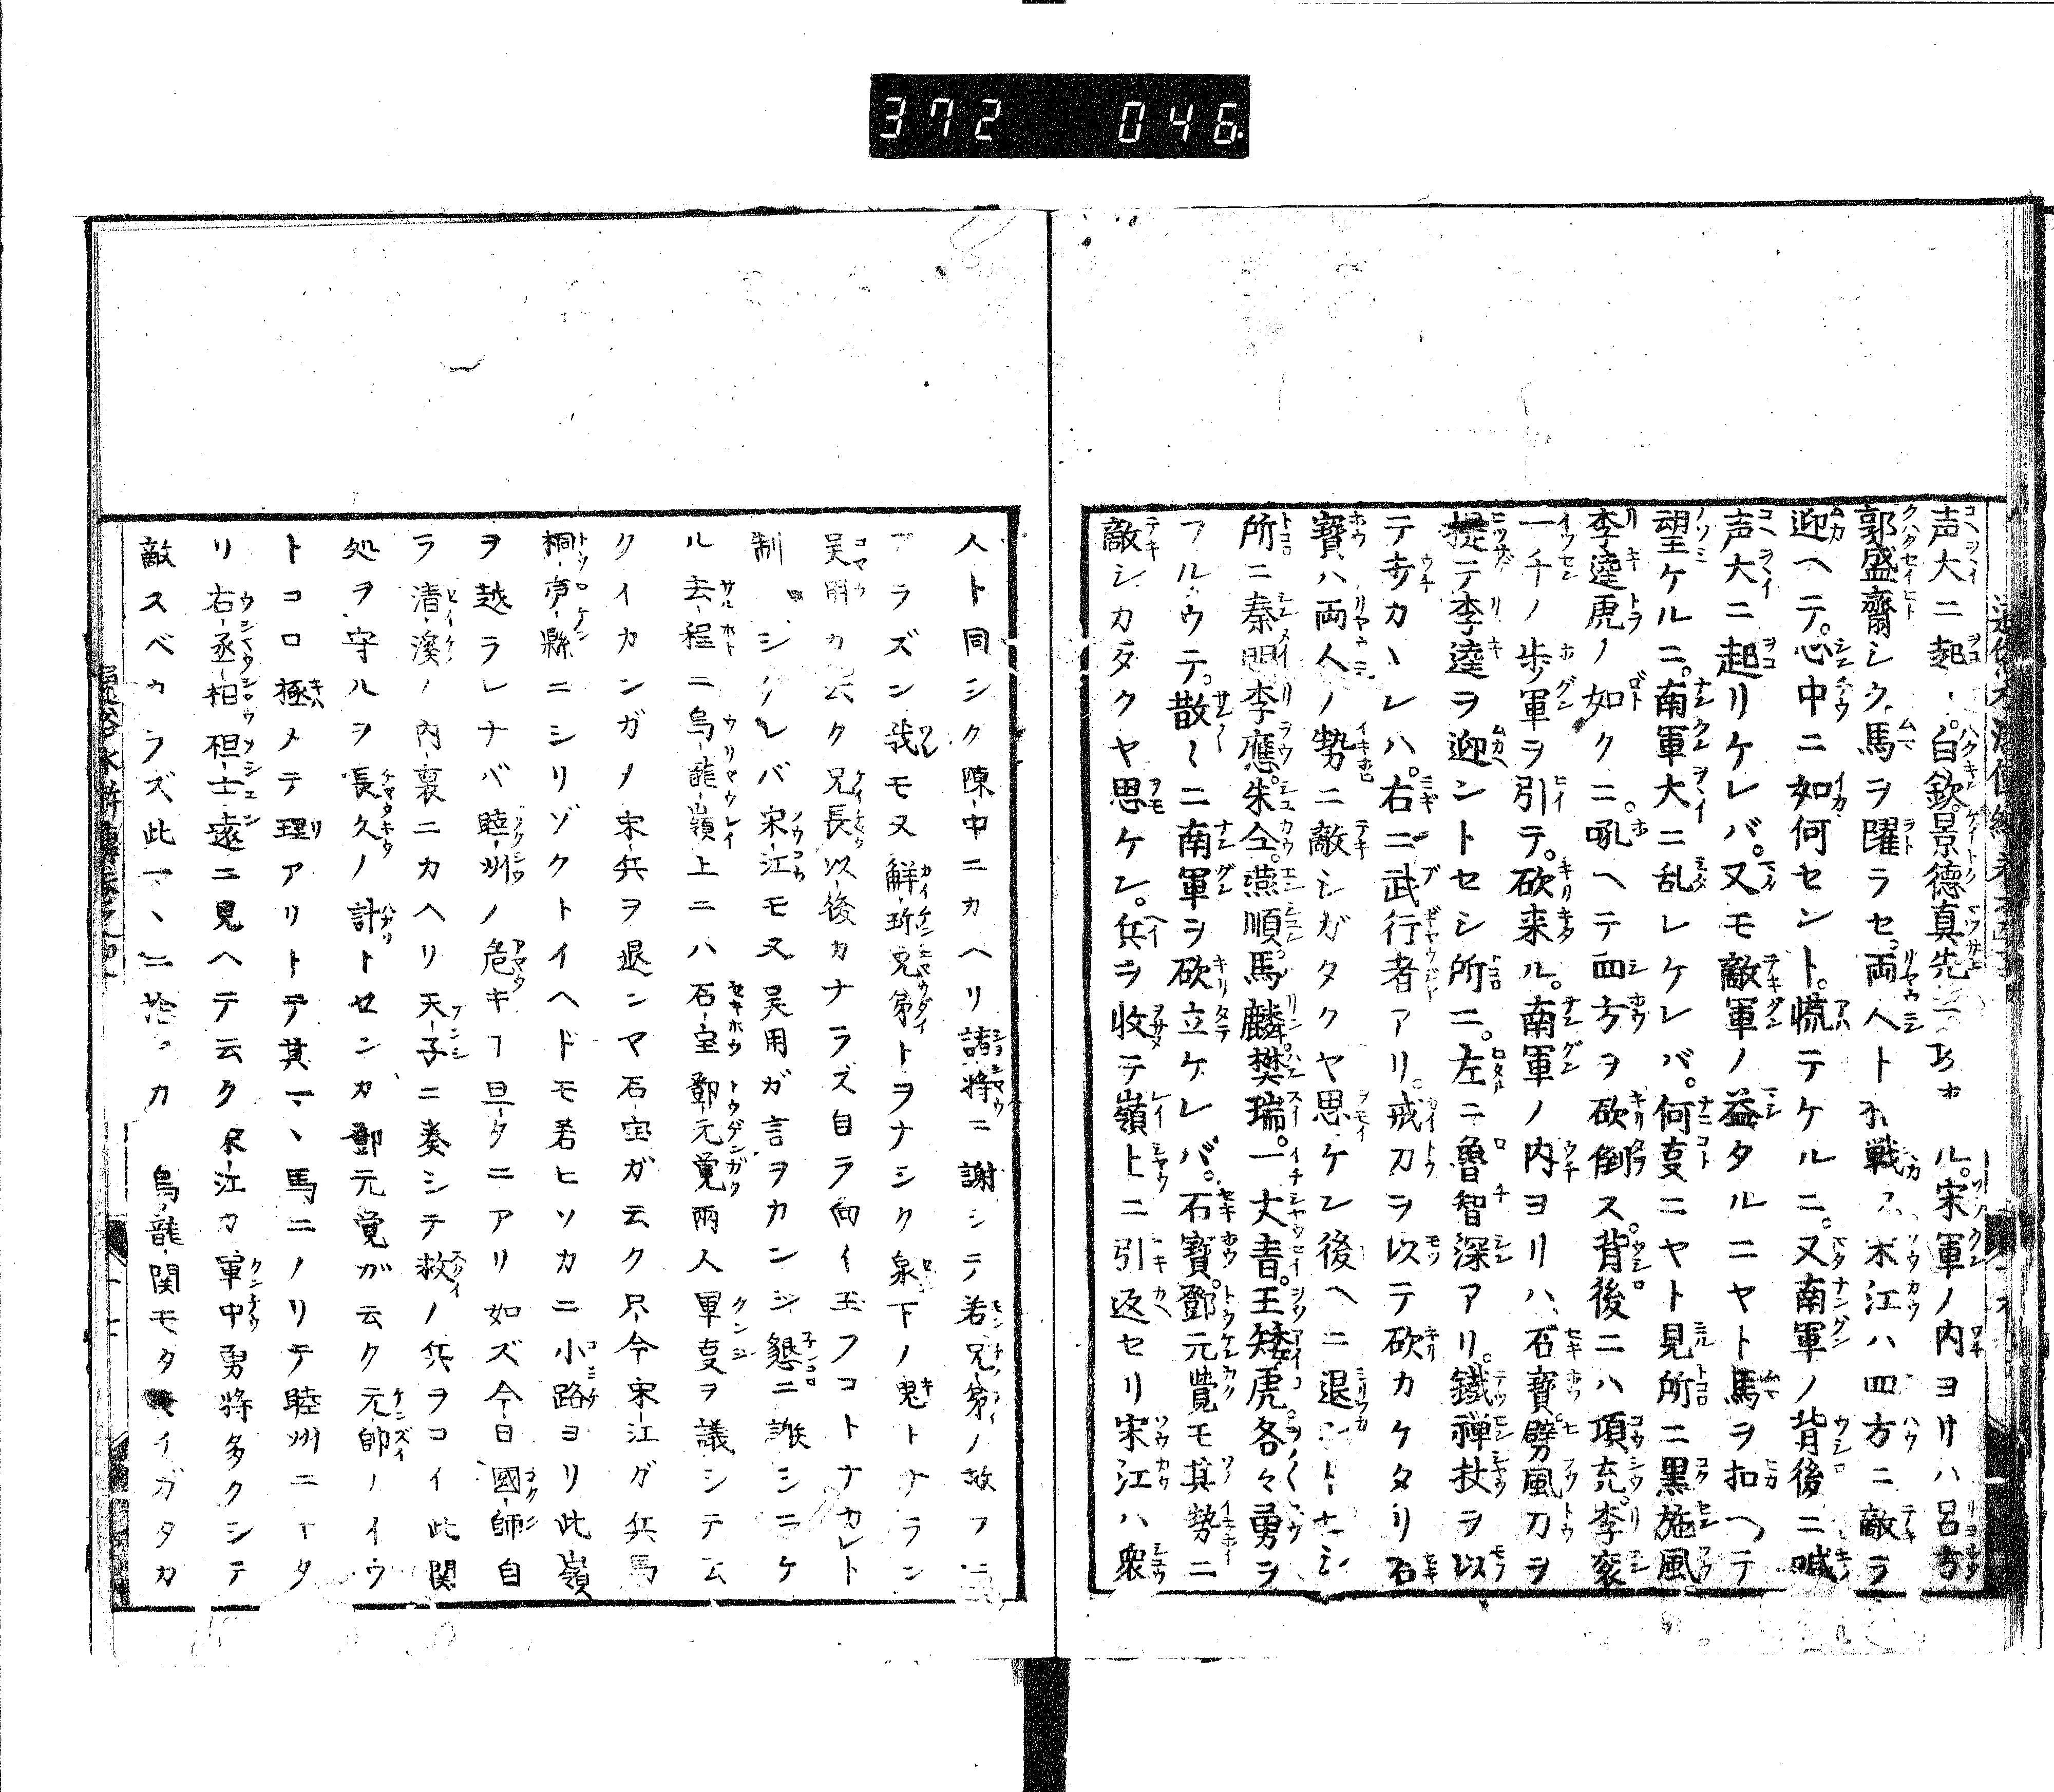 372 046
声大ニ起、白欽。景德真先ニ　ル。宋軍ノ内ヨリハ呂方
郭盛齋シク馬ヲ躍ラセ。両人ト戦フ宋江ハ四方ニ敵ラ
迎ヘテ。心中ニ如何セント。慌テケルニ。又南軍ノ背後ニ喊
声大ニ起リケレバ。又モ敵軍ノ益タルニヤト馬ヲ扣ヘテ
望ケルニ。南軍大ニ乱レケレバ。何叓ニヤト見所ニ黒旋風
李逵虎ノ如クニ。吼ヘテ四方ヲ砍倒ス。背後ニハ項充。李袞
一千ノ歩軍ヲ引テ。砍来ル。南軍ノ内ヨリハ、石寶。劈風刀ヲ
提テ李逵ヲ迎ントセシ所ニ。左ニ魯智深アリ。鐵禅杖ヲ以
テ歩カヽレハ。右ニ武行者アリ。戒刀ヲ以テ砍カケタリ石
寶ハ両人ノ勢ニ敵シガタクヤ思ケレ後ヘニ退ントナシ
所ニ秦明李應。朱仝。燕順。馬麟。樊瑞。一丈青。王矮虎。各々勇ヲ
フルウテ。散〱ニ南軍ヲ砍立ケレバ。石寶。鄧元覺モ其勢ニ
敵シカタクヤ思ケレ。兵ヲ收テ嶺上ニ引返セリ宋江ハ衆
人ト同シク陳中ニカヘリ諸将ニ謝シテ若兄弟ノ救フニ
アラズン我モ又解珎兄弟トヲナシク泉下ノ鬼トナラン
吴用カ云ク兄長以後カナラズ自ラ向イ玉フコトナカレト
制シケレバ宋江モ又吴用ガ言ヲカンジ懇ニ謝シニケ
ル去程ニ烏龍嶺上ニハ石宝鄧元覚両人軍叓ヲ議シテ云
クイカンガノ宋兵ヲ退ンマ石宝ガ云ク只今宋江ガ兵馬
桐庐縣ニシリゾクトイヘドモ若ヒソカニ小路ヨリ此嶺
ヲ越ラレナバ睦州ノ危キヿ旦タニアリ如ズ今日國師自
ラ清溪ノ内裏ニカヘリ天子ニ奏シテ救ノ兵ヲコイ此関
処ヲ守ルヲ長久ノ計トセンカ鄧元覚ガ云ク元帥ノイウ
トコロ極メテ理アリトテ其マヽ馬ニノリテ睦州ニイタ
リ右丞相祖士遠ニ見ヘテ云ク宋江カ軍中勇将多クシテ
敵スベカラズ此マヽニ捨　カ　烏龍関モタモイガタカ